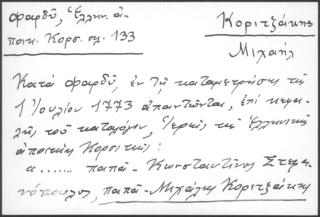 Φαρδύ, Ἑλλην. ἀ-
ποικ. Κορσ. σλ. 133
Κοριτζάκης
Μιχαήλ
Κατά Φαρδύ, ἐν τῇ καταμετρήσει τῆς
1 Ἰουλίου 1773 ἀπαντῶνται, ἐπί κεφα-
λῆς τοῦ καταλόγου, Ἱερεῖς τῆς Ἑλληνικῆς
ἀποικίας Κορσικῆς:
«....... παπᾶ - Κωνσταντῖνος Στεφα-
νόπουλος, παπᾶ - Μιχάλης Κοριτζάκης